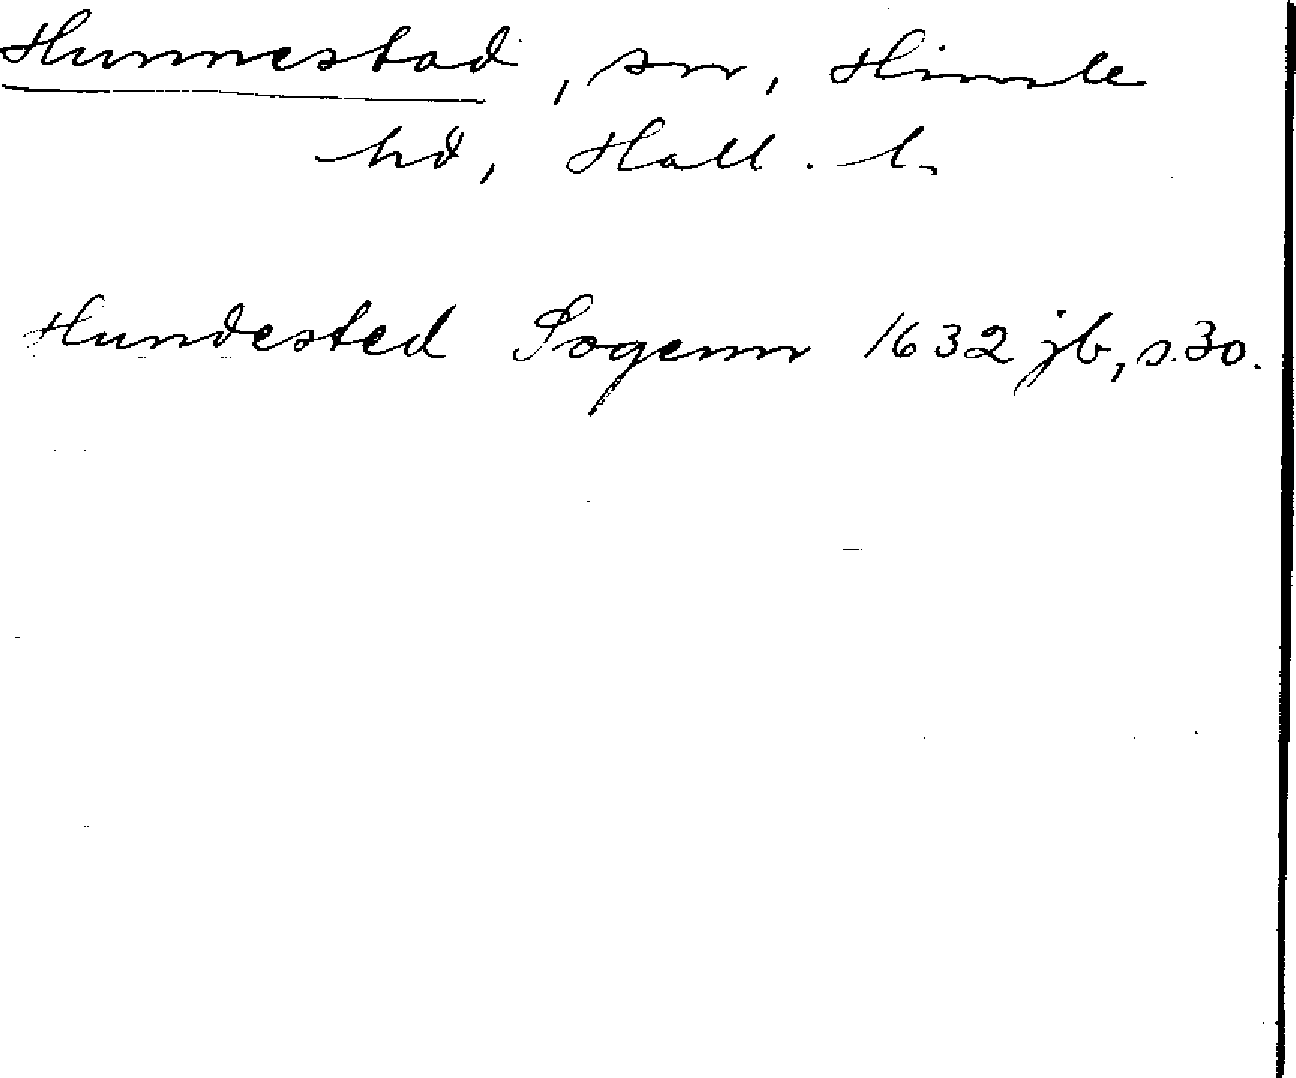 Hunnestad, sn, Himle
hd, Hall. l.
Hundested Sogenn 1632 jb, s. 30.